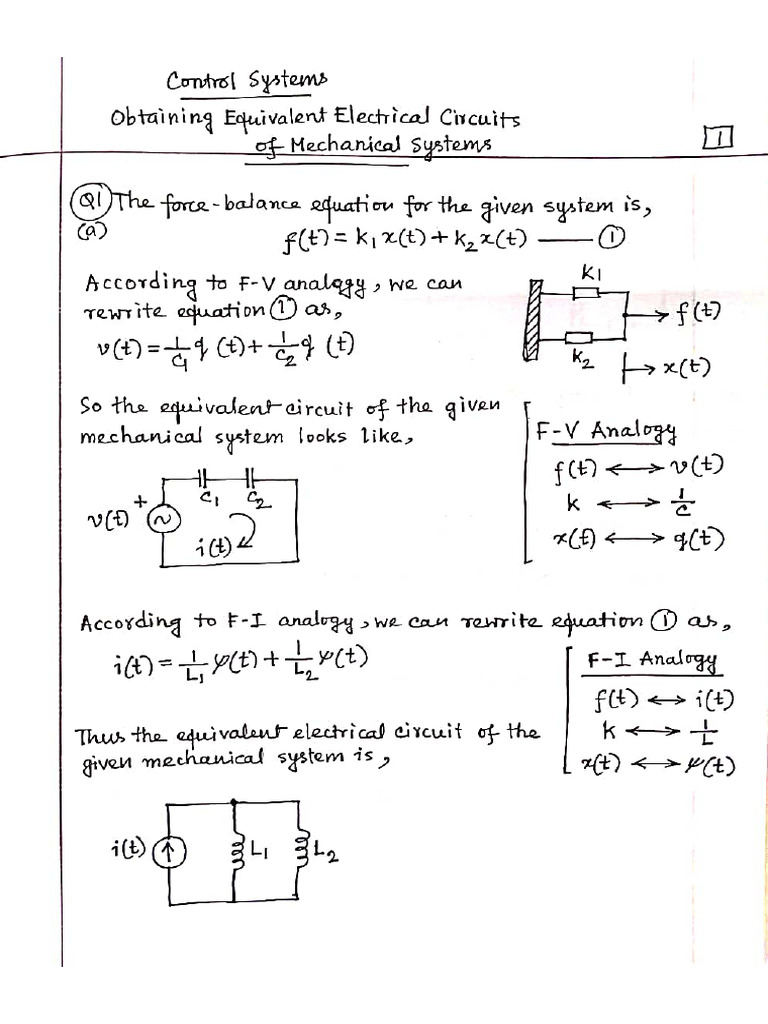 Control Systems
Obtaining Equivalent Electrical Circuits
of Mechanical Systems
1
Q1 The force-balance equation for the given system is,
(a)
f(t) = k1 x(t) + k2 x(t) — ①
According to F-V analogy, we can
rewrite equation ① as,
v(t) = 1/C1 q (t) + 1/C2 q (t)
k1
f(t)
k2
x(t)
So the equivalent circuit of the given
mechanical system looks like,
F-V Analogy
f(t) ⟷ v(t)
k ⟷ 1/C
x(t) ⟷ q(t)
+
v(t)
C1 C2
i(t)
According to F-I analogy, we can rewrite equation ① as,
i(t) = 1/L1 ψ(t) + 1/L2 ψ(t)
F-I Analogy
f(t) ⟷ i(t)
k ⟷ 1/L
x(t) ⟷ ψ(t)
Thus the equivalent electrical circuit of the
given mechanical system is,
i(t)
L1 L2